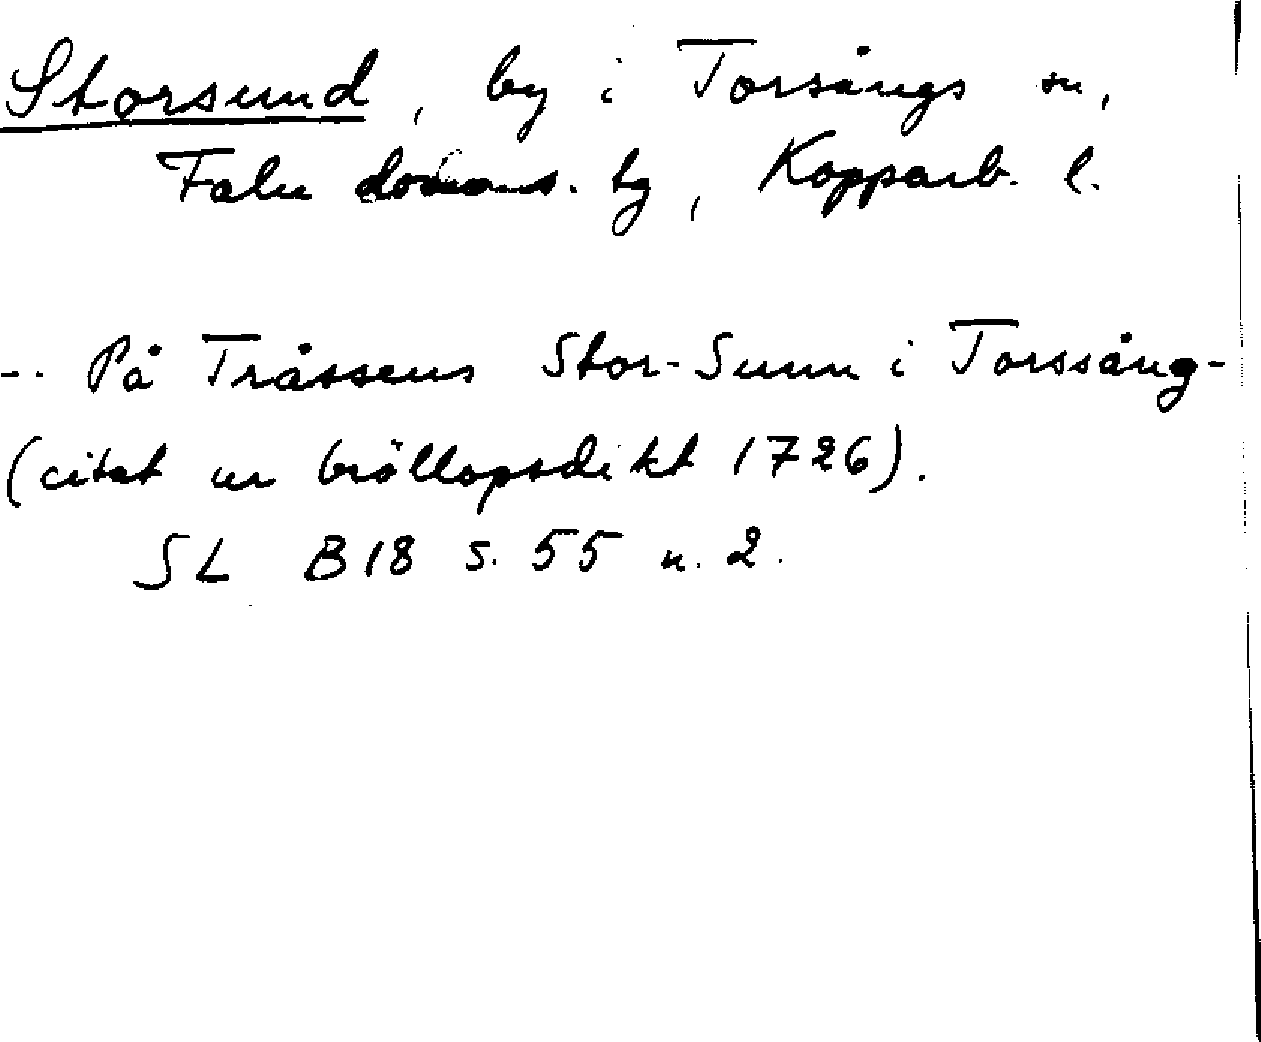 Storsund, by i Torsångs sn,
Falu domsag. tg, Kopparb. l.
-- På Tråssens Stor-Sunn i Torssång-
(citat ur bröllopsdikt 1726).
SL B18 s. 55 n. 2.